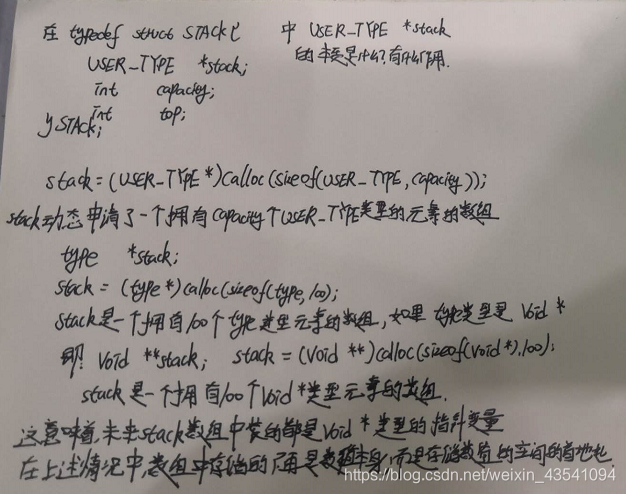 在 typedef struct STACK{
USER_TYPE *stack;
int capacity;
int top;
}STACK;
中 USER_TYPE *stack
的本质是什么?有什么作用.
stack=(USER_TYPE*)calloc(sizeof(USER_TYPE,capacity));
stack动态申请了一个拥有capacity个USER_TYPE类型的元素的数组
type *stack;
stack = (type*)calloc(sizeof(type,100);
stack是一个拥有100个type类型元素的数组,如果type类型是 void *
即: void **stack; stack=(void **)calloc(sizeof(void*),100);
stack是一个拥有100个void*类型元素的数组.
这意味着未来stack数组中装的都是void *类型的指针变量
在上述情况中,数组中存储的不再是数据本身,而是存储数据的空间的首地址
https://blog.csdn.net/weixin_43541094